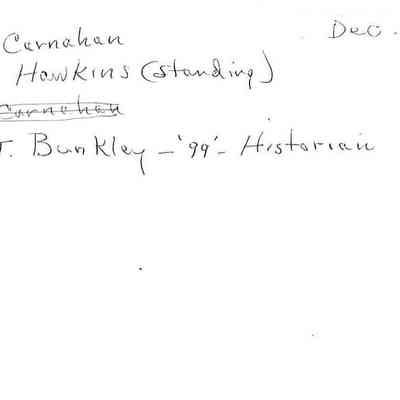 Carnahan Dec.
Hawkins (standing)
Carnahan
T. Bunkley - '99'- Historian